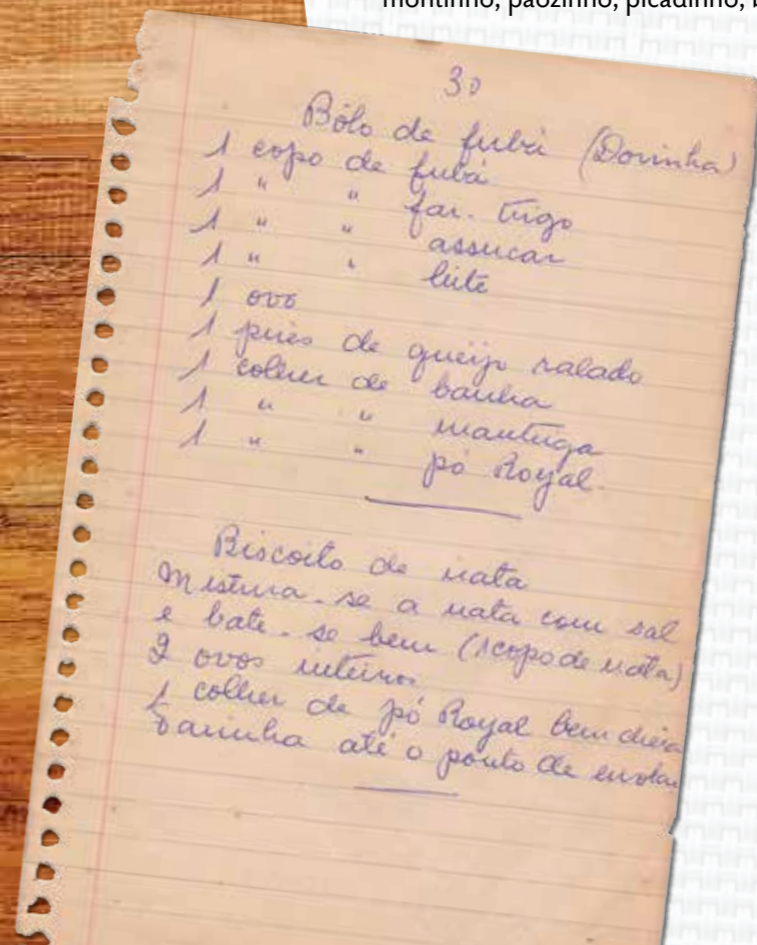 montinho, pãozinho, picadinho, b
30
Bôlo de fubá (Dorinha)
1 copo de fubá
1 " " far. trigo
1 " " assucar
1 " " leite
1 ovo
1 pires de queijo ralado
1 colher de banha
1 " " manteiga
1 " " pó Royal.
Biscoito de nata
Mistura-se a nata com sal
e bate-se bem (1 copo de nata)
2 ovos inteiros
1 colher de pó Royal bem cheia
Farinha até o ponto de enrolar